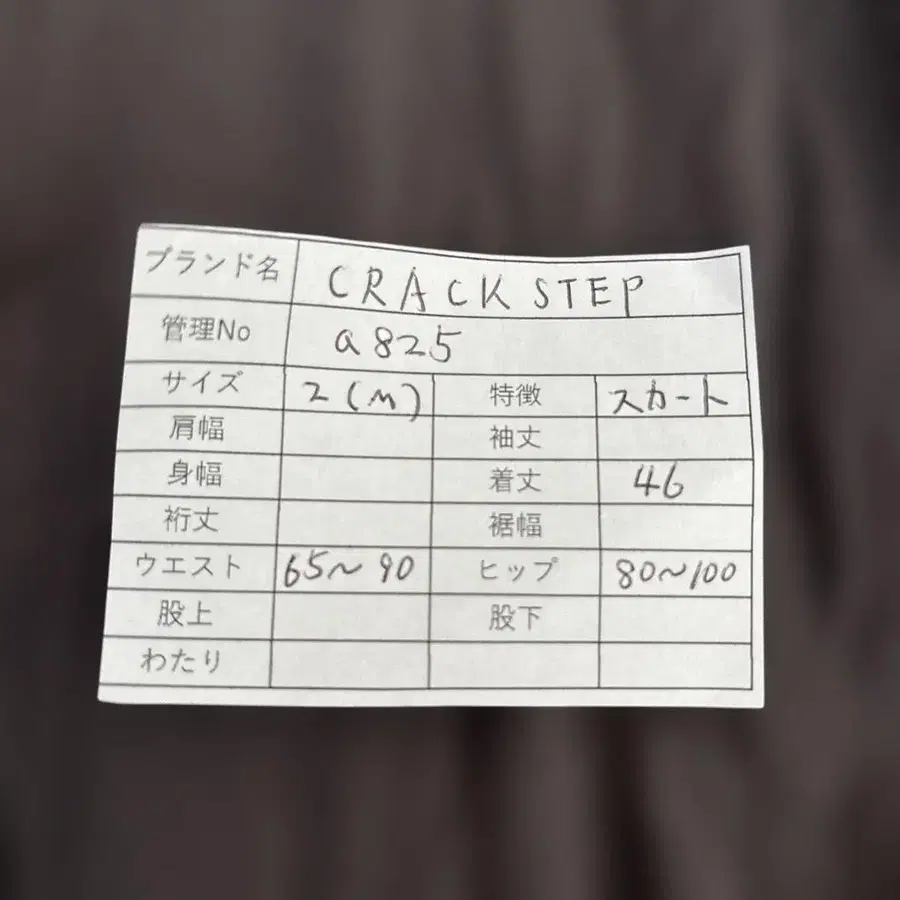 ブランド名 CRACK STEP
管理No a825
サイズ 2(M) 特徴 スカート
肩幅 袖丈
身幅 着丈 46
裄丈 裾幅
ウエスト 65~90 ヒップ 80~100
股上 股下
わたり